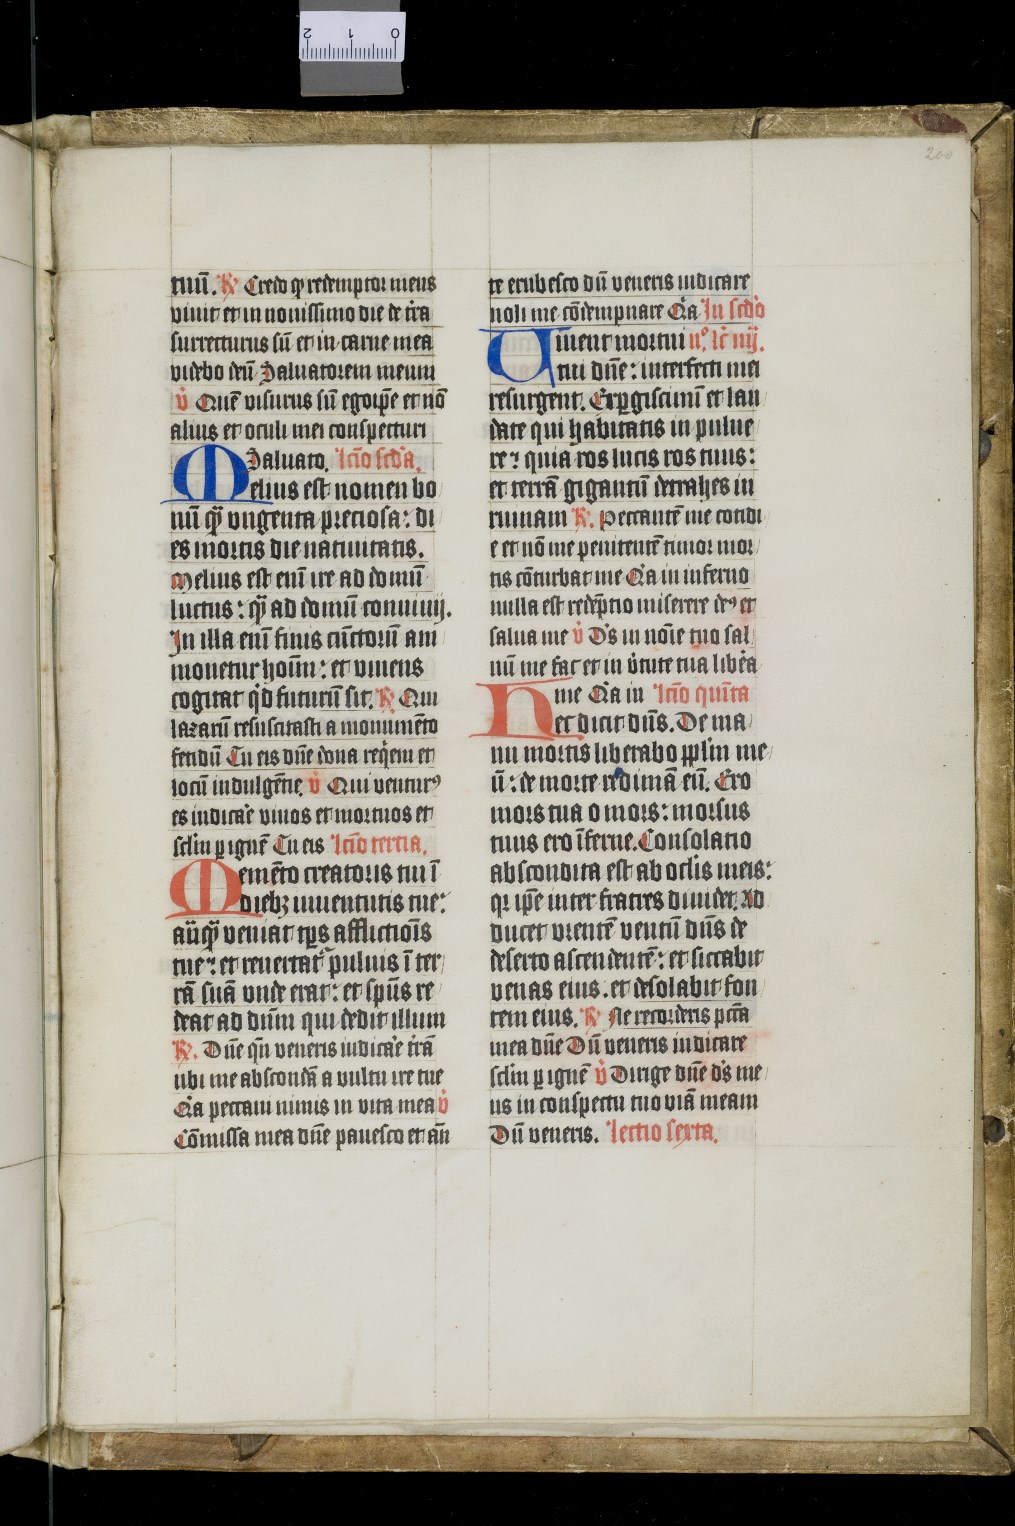 200
tuū. ℟ Credo qꝫ redemptor meus
viuit et in nouissimo die de t̄ra
surrecturus sū et in carne mea
videbo deū Saluatorem meum
℣ Quē visurus sū ego ip̄e et nō
alius et oculi mei conspecturi
Saluatō. Lc̄io sc̄da.
Melius est nomen bo
nū qᷓ vngenta preciosa: di
es mortis die natiuitatis.
Melius est enī ire ad domū
luctus: qᷓ ad domū conuiuij.
In illa enī finis cūctorū am
monetur hoīm: et viuens
cogitat qd̓ futurū sit. ℟ Qui
lazarū resuscitasti a monumēto
fetidū Tu eis dn̄e dona req̄em et
locū indulgētie. ℣ Qui ventur⁹
es iudica᷑e viuos et mortuos et
sclm̄ p ignē Tu eis Lc̄io tertia.
Memēto creatoris tui ī
diebꝫ iuuentutis tue:
an̄qᷓ veniat tp̄s afflictiōis
tue: et reuertat᷑ puluis ī ter
rā suā vnde erat: et sp̄us re
deat ad dūm qui dedit illum
℟. Dn̄e qn̄ veneris iudica᷑e t̄rā
ubi me abscondā a vultu ire tue
Q̓a peccaui nimis in vita mea ℣
Cōmissa mea dn̄e pauesco et an̄
te erubesco dū veneris iudicare
noli me cōdempnare Q̓a In sc̄do
Viuent mortui n°. Lc̄ iiij.
tui dn̄e: interfecti mei
resurgent. Expgiscimī et lau
date qui habitatis in pulue
re: quia ros lucis ros tuus:
et terrā gigantū detrahes in
ruinam ℟. Peccantē me cotidi
e et nō me penitentē timor mor
tis cōturbat me Q̓a in inferno
nulla est redēptio miserere de⁹ et
salua me ℣ Ds̄ in nōie tuo sal
uū me fac et in v̓tute tua lib̓a
me Q̓a in Lc̄io quīta
Hec dicit dn̄s. De ma
nu mortis liberabo pplm̄ me
ū: de morte redimā eū. Ero
mors tua o mors: morsus
tuus ero īferne. Consolatio
abscondita est ab oclis meis:
qr ip̄e inter fratres diuidet. Ad
ducet vrentē ventū dn̄s de
deserto ascendentē: et siccabit
venas eius. et desolabit fon
tem eius. ℟ Ne recorderis pctā
mea dn̄e Dū veneris iudicare
sclm̄ p ignē ℣ Dirige dn̄e ds̄ me
us in conspectu tuo viā meam
Dū veneris. Lectio sexta.
0 1 2